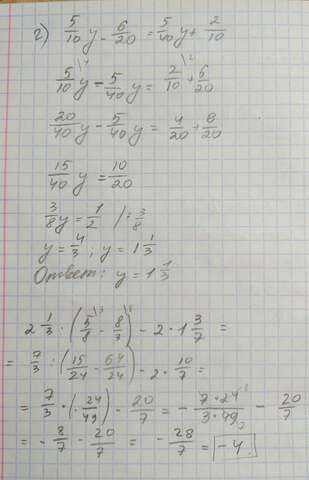 2) 5/10 y - 6/20 = 5/40 y + 2/10
5/10 \4 y - 5/40 y = 2/10 \2 + 6/20
20/40 y - 5/40 y = 4/20 + 6/20
15/40 y = 10/20
3/8 y = 1/2 | : 3/8
y = 4/3 ; y = 1 1/3
Ответ: y = 1 1/3
2 1/3 : (5/8 \3 - 8/3 \8) - 2 · 1 3/7 =
= 7/3 : (15/24 - 64/24) - 2 · 10/7 =
= 7/3 · (- 24/49) - 20/7 = - 7 · 24/3 · 49 - 20/7
= - 8/7 - 20/7 = - 28/7 = -4.